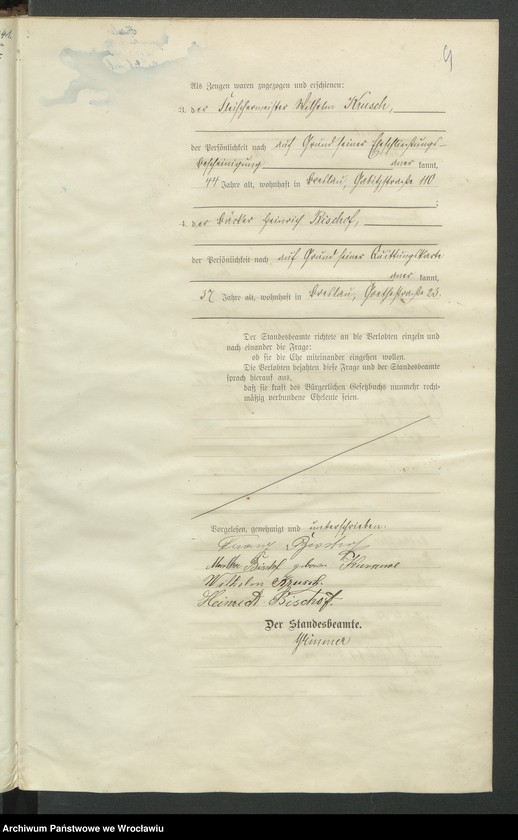 9
Als Zeugen waren zugezogen und erschienen:
3. der Fleischermeister Wilhelm Krusch,
der Persönlichkeit nach auf Grund seiner Eheschließungs-
bescheinigung aner kannt,
44 Jahre alt, wohnhaft in Breslau, Gabitzstraße 110
;
4. der Bäcker Heinrich Bischof,
der Persönlichkeit nach auf Grund seiner Quittungskarte
aner kannt,
37 Jahre alt, wohnhaft in Breslau, Goethestraße 23.
Der Standesbeamte richtete an die Verlobten einzeln und
nach einander die Frage:
ob sie die Ehe miteinander eingehen wollen.
Die Verlobten bejahten diese Frage und der Standesbeamte
sprach hierauf aus,
daß sie kraft des Bürgerlichen Gesetzbuchs nunmehr recht-
mäßig verbundene Eheleute seien.
Vorgelesen, genehmigt und unterschrieben.
Franz Bischof
Martha Bischof geborene
Wilhelm Krusch.
Heinrich Bischof.
Der Standesbeamte.
Archiwum Państwowe we Wrocławiu